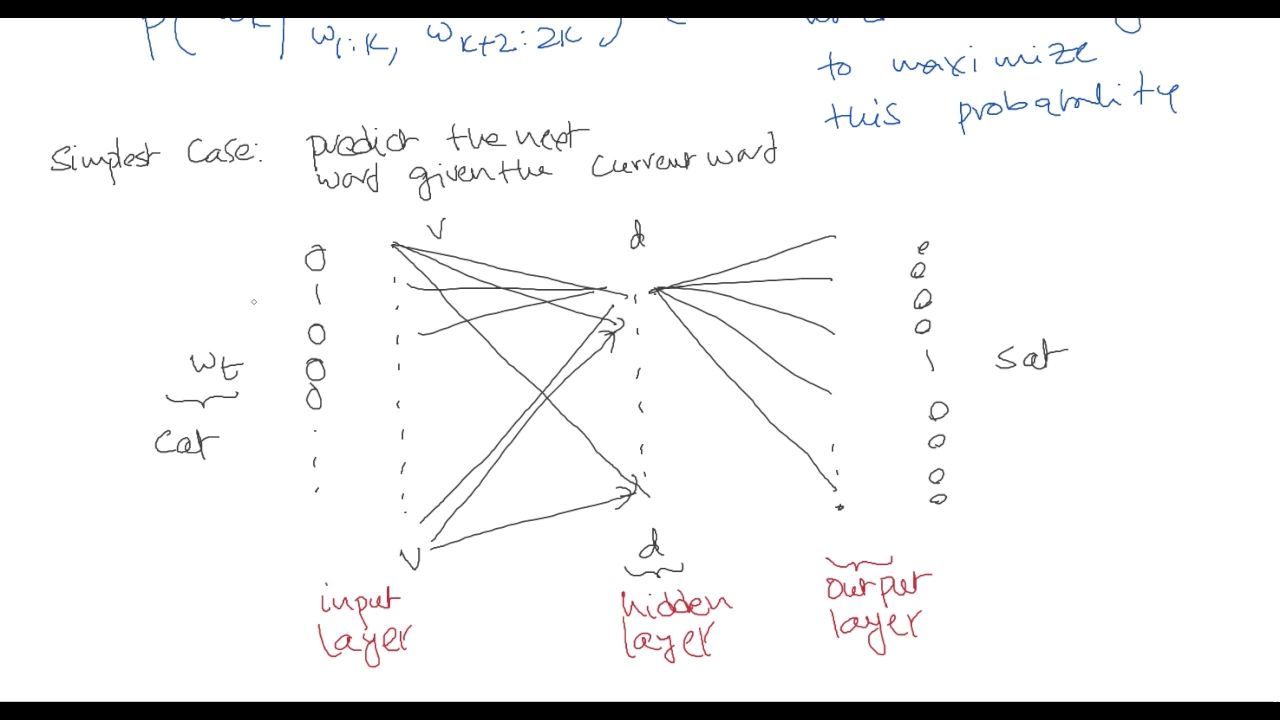 P( | w1:k, wk+2:2k )
to maximize
this probability
simplest case: predict the next
word given the current word
V d
0 0
1 0
0 0
0 0
0 1
wt sat
cat
0
0
0
0
V d
input layer
hidden layer
output layer